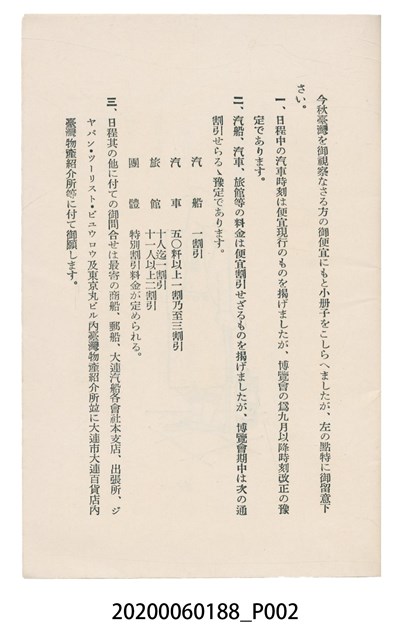 今秋臺灣を御視察なさる方の御便宜にもと小册子をこしらへましたが、左の點特に御留意下
さい。
一、日程中の汽車時刻は便宜現行のものを揭げましたが、博覽會の爲九月以降時刻改正の豫
定であります。
二、汽船、汽車、旅館等の料金は便宜割引せざるものを揭げましたが、博覽會期中は次の通
割引せらるゝ豫定であります。
汽船 一割引
汽車 五〇粁以上一割乃至三割引
旅館 十人迄一割引
十一人以上二割引
團體 特別割引料金が定められる。
三、日程其の他に付ての御問合せは最寄の商船、郵船、大連汽船各會社本支店、出張所、ジ
ヤパン・ツーリスト・ビユウロウ及東京丸ビル内臺灣物產紹介所竝に大連市大連百貨店内
臺灣物產紹介所等に付て御願します。
20200060188_P002